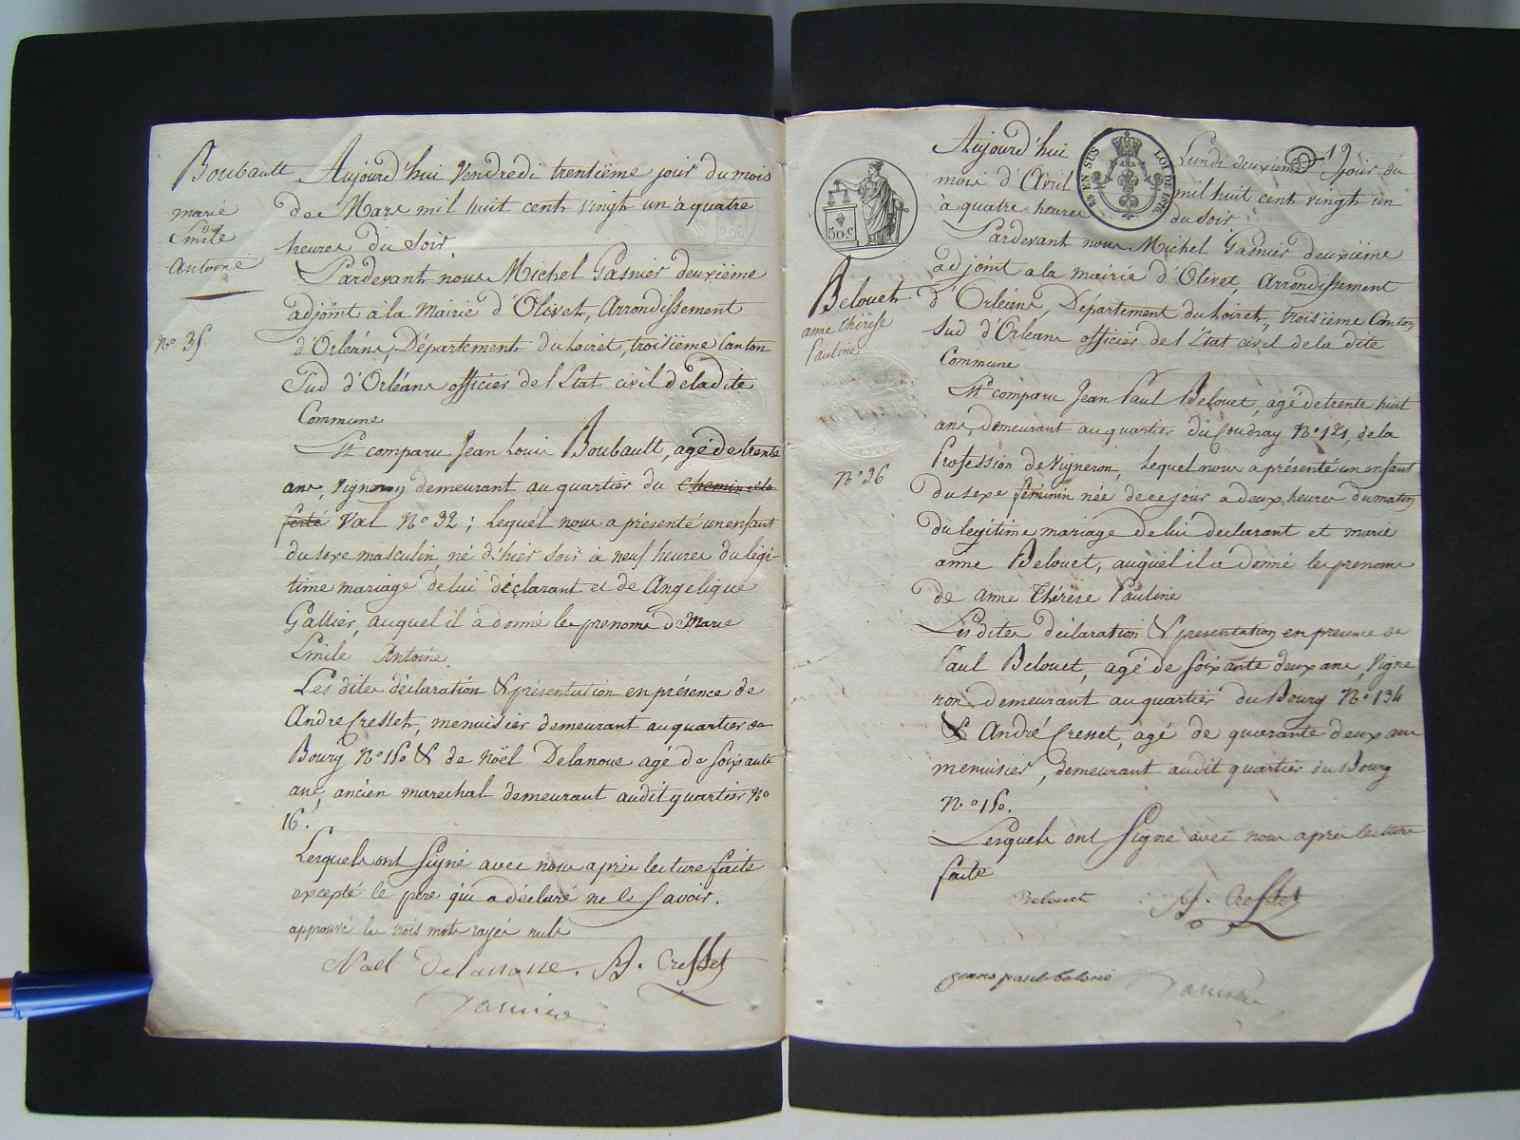 Boubault
marie
Emile
Antoine
N.o 35
Aujourd'hui Vendredi trentième jour du mois
de Mars mil huit cent vingt un à quatre
heures du Soir.
Pardevant nous Michel Gasnier deuxième
adjoint à la Mairie d'Olivet, Arrondissement
d'Orléans, Département du Loiret, troisième Canton
Sud d'Orléans officier de l'Etat civil de la dite
Commune
Est comparu Jean Louis Boubault, agé de trente
ans, Vigneron demeurant au quartier du Chemin de la
ferté Val N.o 32; Lequel nous a présenté un enfant
du sexe masculin, né d'hier soir à neuf heures du légi-
time mariage de lui déclarant et de Angelique
Gallier, auquel il a donné les prenoms de Marie
Emile Antoine.
Les dites déclaration & présentation en présence de
André Cresset, menuisier demeurant au quartier du
Bourg N.o 150 & de Noël Delanoue agé de soixante
ans, ancien marechal demeurant audit quartier N.o
16.
Lesquels ont Signé avec nous après lecture faite
excepté le père qui a déclaré ne le Savoir.
approuvé les trois mots rayés nuls
Noel Delanoue. A. Cresset
Gasnier
19
50 c
EN SUS
LOI DE 1816
Aujourd'hui Lundi deuxième jour du
mois d'Avril mil huit cent vingt un
à quatre heures du Soir
Pardevant nous Michel Gasnier deuxième
adjoint a la mairie d'Olivet, Arrondissement
Belouet
anne thérèse
Pauline
d'Orléans, Département du Loiret, troisième Canton
Sud d'Orléans officier de l'Etat civil de la dite
Commune
Est comparu Jean Paul Belouet, agé de trente huit
ans, demeurant au quartier du Coudray N.o 121, de la
N.o 36
Profession de Vigneron, Lequel nous a présenté un enfant
du sexe féminin née de ce jour a deux heures du matin
du legitime mariage de lui declarant et marie
anne Belouet, auquel il a donné les prenoms
de anne Thérèse Pauline
Les dites déclaration & presentation en presence de
Paul Belouet, agé de soixante deux ans, Vigne
ron demeurant au quartier du Bourg N.o 134
& André Cresset, agé de quarante deux ans
menuisier, demeurant audit quartier du Bourg
N.o 150.
Lesquels ont Signé avec nous après lecture
faite
Belouet A. Cresset
Gasnier